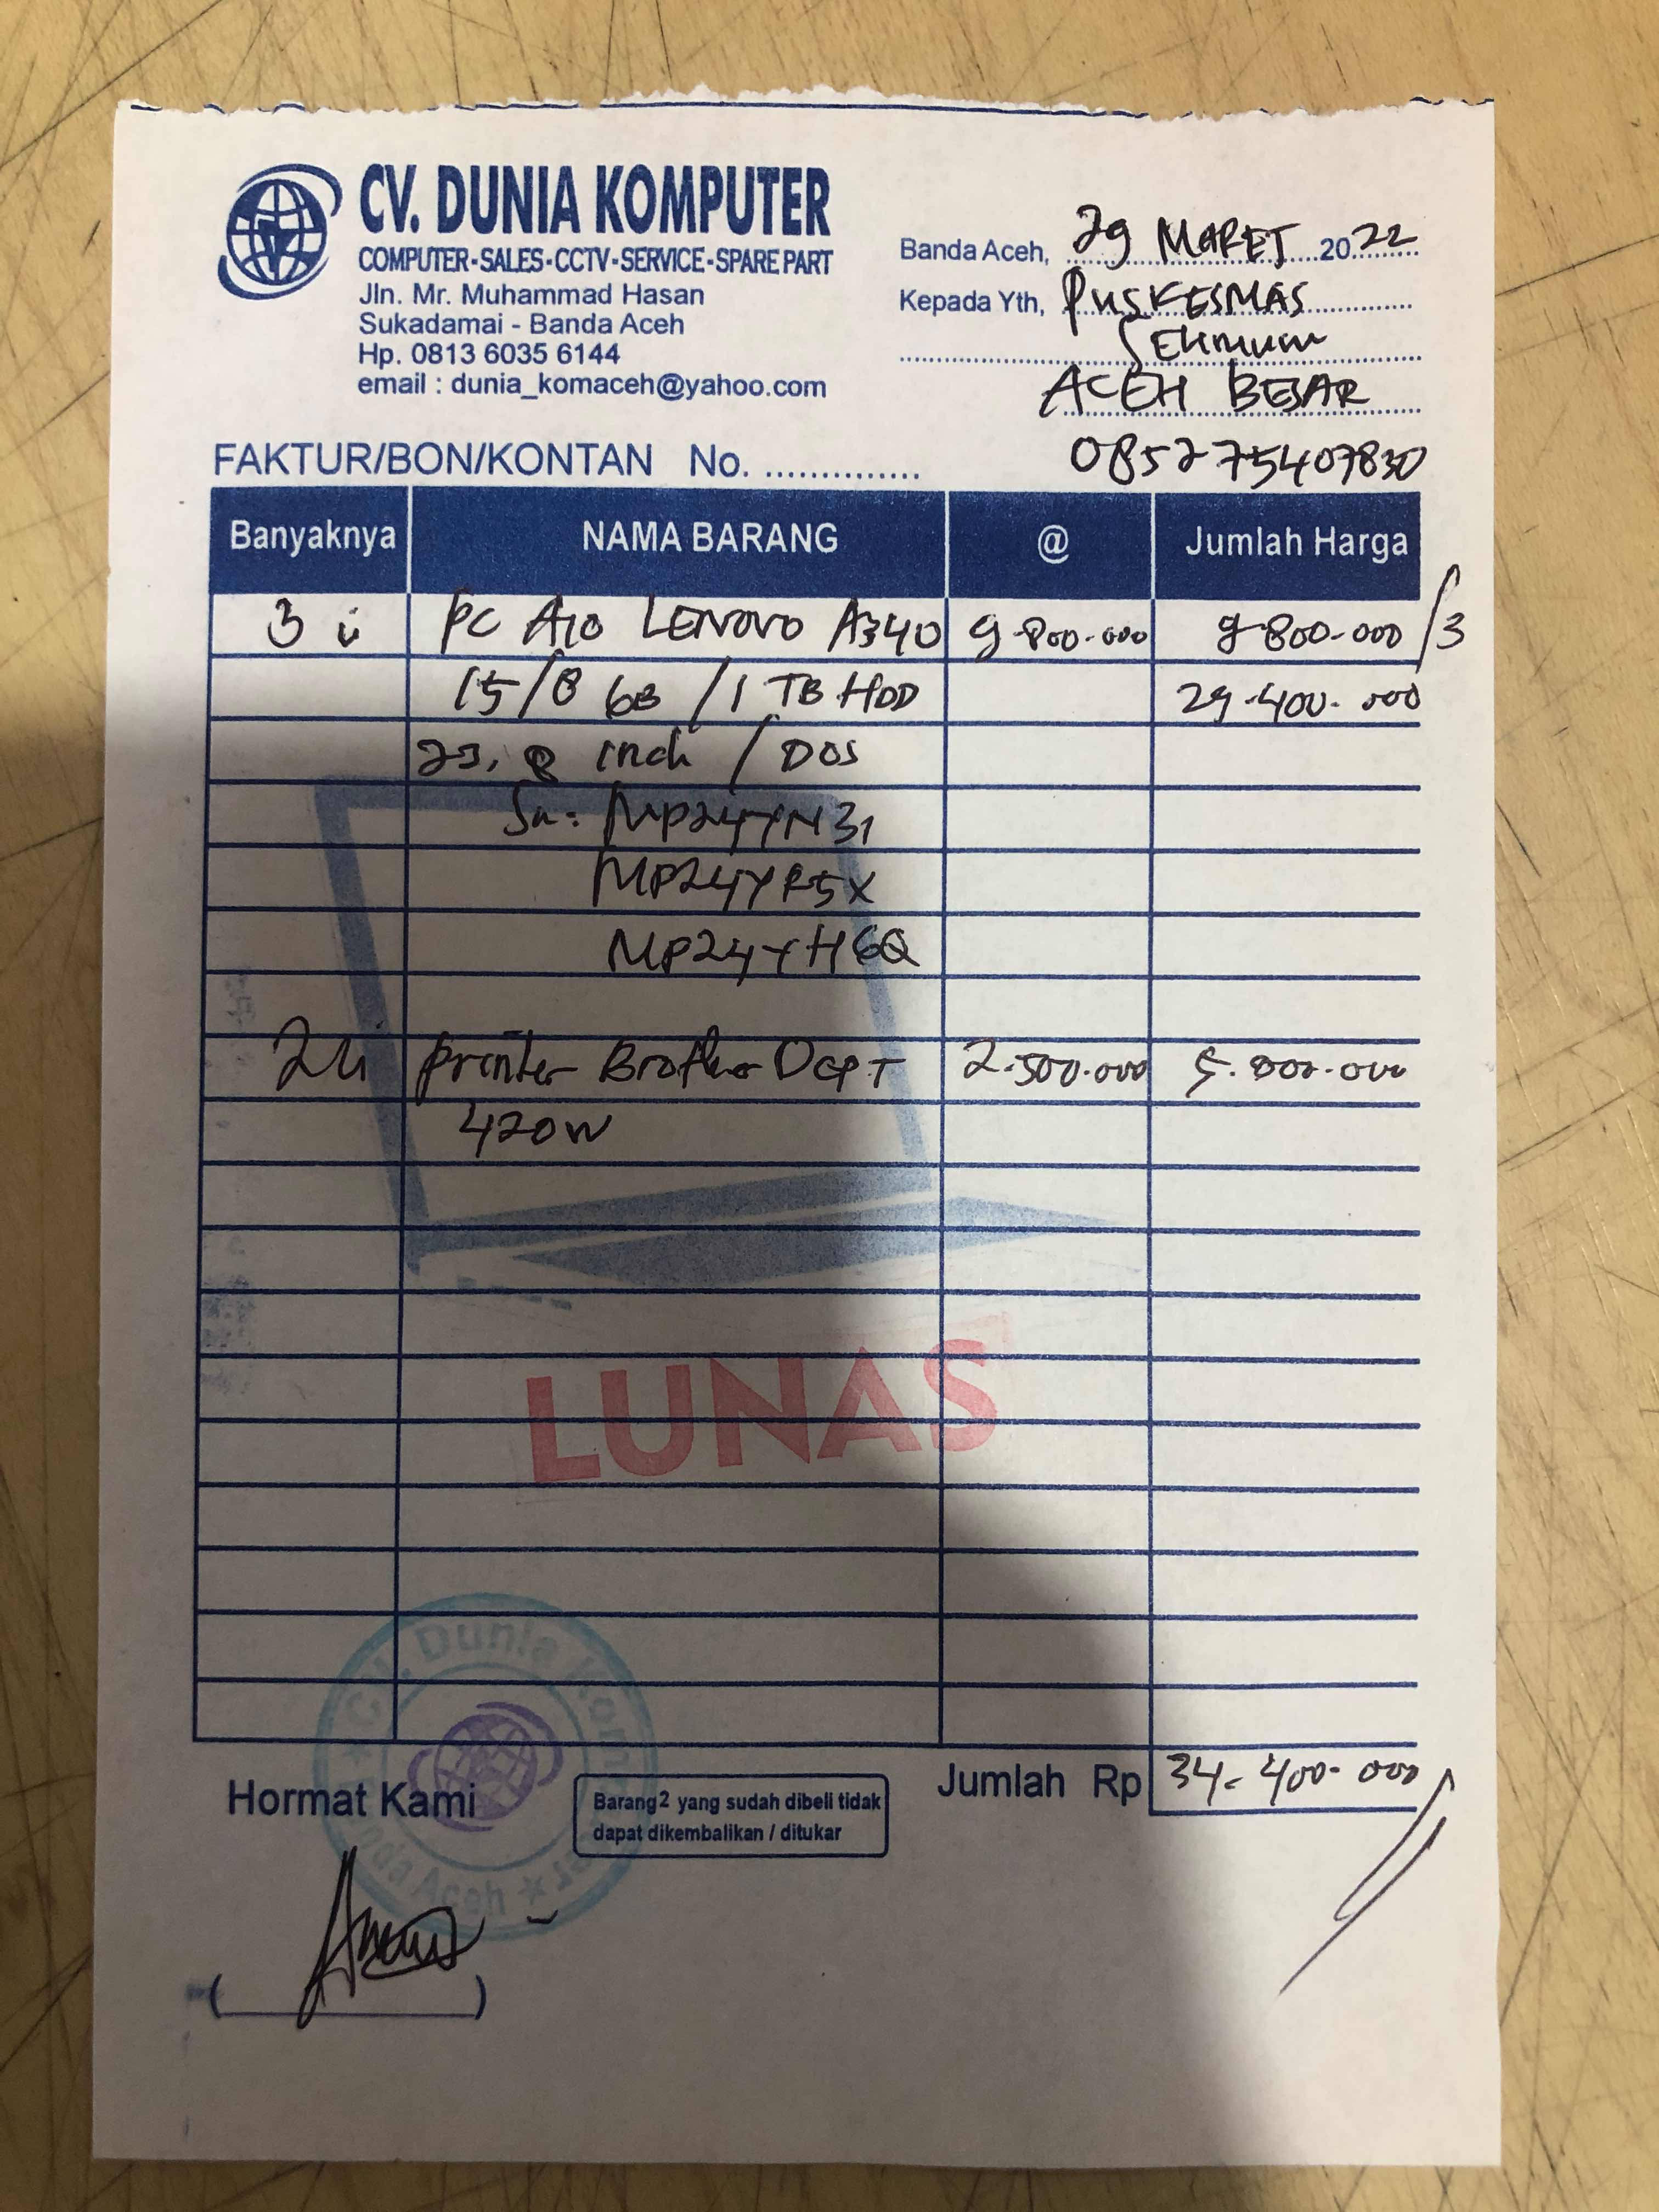 CV. DUNIA KOMPUTER
COMPUTER-SALES-CCTV-SERVICE-SPARE PART
Jln. Mr. Muhammad Hasan
Sukadamai - Banda Aceh
Hp. 0813 6035 6144
email : dunia_komaceh@yahoo.com
Banda Aceh, 29 MARET 2022
Kepada Yth, PUSKESMAS
SElimum
ACEH BESAR
085275407830
FAKTUR/BON/KONTAN No. ..............
Banyaknya NAMA BARANG @ Jumlah Harga
3 u PC AIO LENOVO A340 9.800.000 9.800.000 /3
i5/8 GB /1 TB HDD 29.400.000
23,8 inch / DOS
Sn: MP24YN31
MP24YR5X
MP24YH6Q
2 u printer Brother DCP T 2.500.000 5.000.000
420W
LUNAS
Jumlah Rp 34.400.000
Hormat Kami
Barang2 yang sudah dibeli tidak
dapat dikembalikan / ditukar
CV. Dunia Kom
Banda Aceh